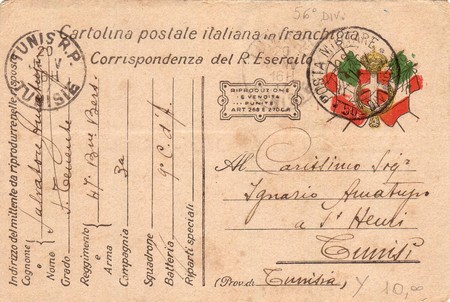 56ª DIV.
Cartolina postale italiana in franchigia
Corrispondenza del R. Esercito
TUNIS R.P.
20
V
TUNISIE
POSTA MILITARE
RIPRODUZIONE
E VENDITA
PUNITE
ART. 288 E 270 C.P.
Indirizzo del mittente da riprodurre nelle risposte
Cognome
Nome Salvatore
Grado S. Tenente
Reggimento 47º
Arma Bers.
Compagnia 3a
Squadrone
Batteria 9º C. d'A.
Riparti speciali
Al Carissimo Sigr
Ignazio Amatufo
a St Henri
Tunisi
(Prov. di Tunisia)
10,00